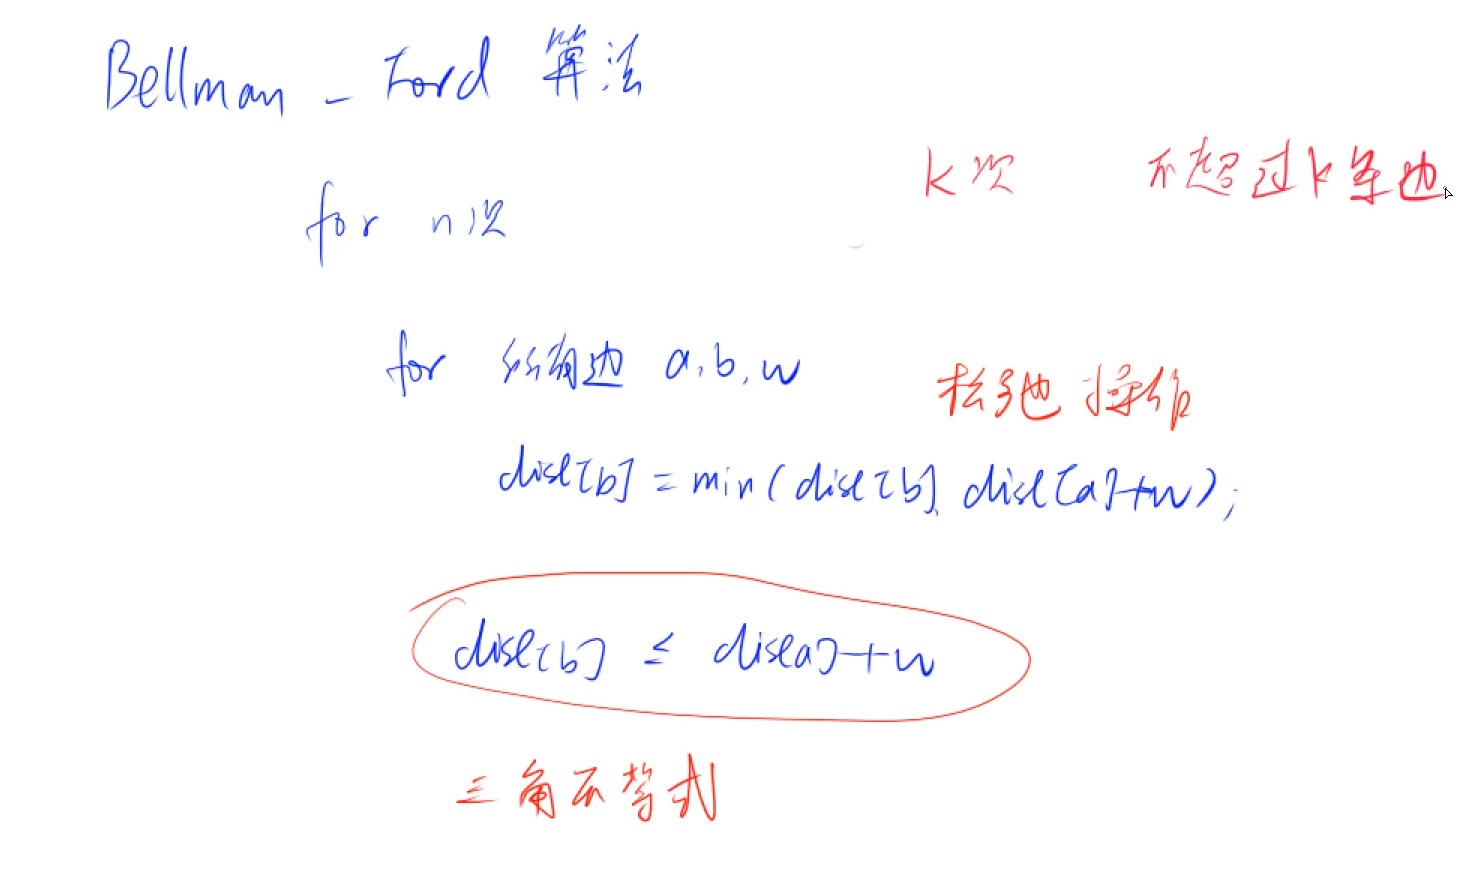 Bellman - Ford 算法
k次 不超过k条边
for n次
for 所有边 a,b,w
松弛操作
dist[b] = min(dist[b], dist[a]+w);
dist[b] ≤ dist[a]+w
三角不等式